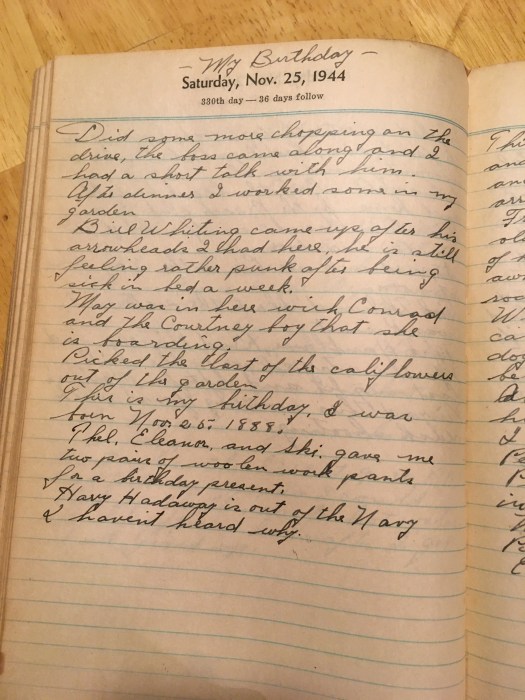 — My Birthday —
Saturday, Nov. 25, 1944
330th day — 36 days follow
Did some more chopping on the
drive, the boss came along and I
had a short talk with him.
After dinner I worked some in my
garden
Bill Whiting came up after his
arrowheads I had here, he is still
feeling rather punk after being
sick in bed a week.
May was in here with Conrad
and the Courtney boy that she
is boarding.
Picked the last of the califlowers
out of the garden
This is my birthday, I was
born Nov 25. 1888.
Phel, Eleanor, and Ski. gave me
two pair of woolen work pants
for a birthday present.
Harry Hadaway is out of the Navy
I havent heard why.
Thi
and
an
arr
of
aw
roo
W
ca
dog
be
h
I
in